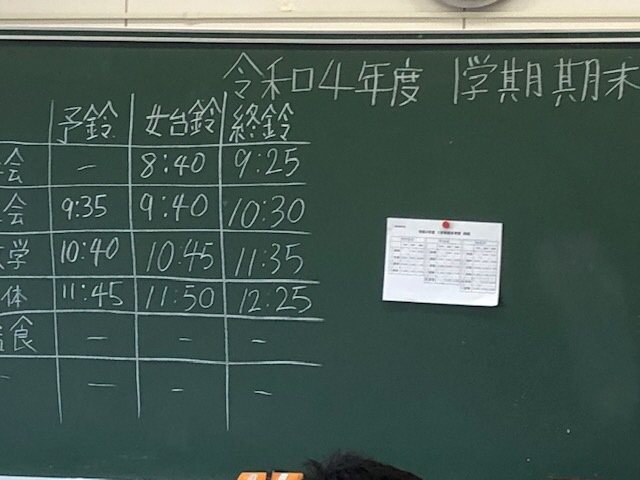 令和4年度 1学期期末
予鈴 始鈴 終鈴
会 - 8:40 9:25
会 9:35 9:40 10:30
学 10:40 10:45 11:35
体 11:45 11:50 12:25
食 - - -
- - - -